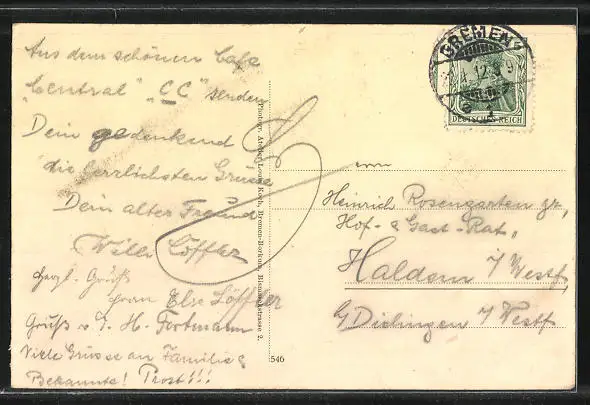 Aus dem schönen Cafe
"Central" "CC" senden
Dein gedenkend
die herzlichsten Grüsse
Dein alter Freund
Willi Löffler
Herzl. Gruß
Frau Else Löffler
Gruß v. H. Fortmann
Viele Grüsse an Familie &
Bekannte! Prost!!!
Photogr. Atelier Louis Koch, Bremen-Borkum, Bismarckstrasse 2.
546
BREMEN
12.
DEUTSCHES REICH
Herrn
Heinrich Rosengarten gr,
Hof- & Gast-Rat"
Haldem i/Westf.
b/ Dielingen i/Westf.